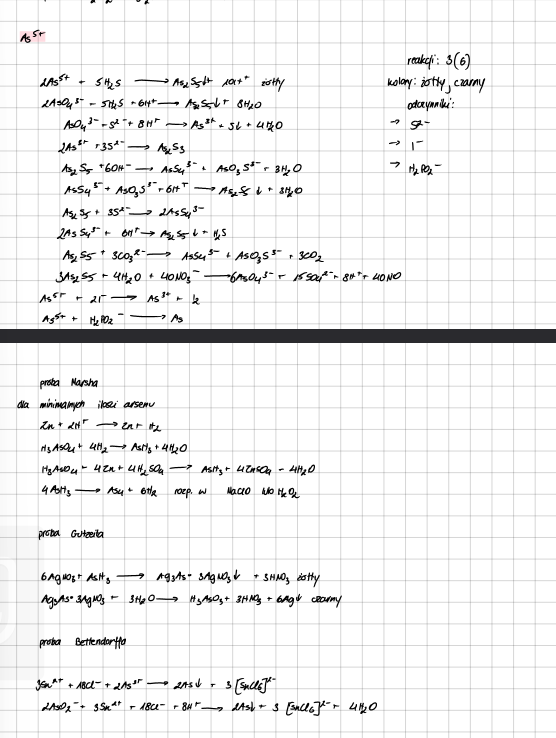 As⁵⁺
reakcji: 3(6)
kolory: żółty, czarny
odczynniki:
→ S²⁻
→ I⁻
→ H₂PO₂⁻
2As⁵⁺ + 5H₂S ⟶ As₂S₅↓ + 10H⁺ żółty
2AsO₄³⁻ + 5H₂S + 6H⁺ ⟶ As₂S₅↓ + 8H₂O
AsO₄³⁻ + S²⁻ + 8H⁺ ⟶ As³⁺ + S↓ + 4H₂O
2As³⁺ + 3S²⁻ ⟶ As₂S₃
As₂S₅ + 6OH⁻ ⟶ AsS₄³⁻ + AsO₃S³⁻ + 3H₂O
AsS₄³⁻ + AsO₃S³⁻ + 6H⁺ ⟶ As₂S₅↓ + 3H₂O
As₂S₅ + 3S²⁻ ⟶ 2AsS₄³⁻
2AsS₄³⁻ + 6H⁺ ⟶ As₂S₅↓ + H₂S
As₂S₅ + 3CO₃²⁻ ⟶ AsS₄³⁻ + AsO₃S³⁻ + 3CO₂
3As₂S₅ + 4H₂O + 40NO₃⁻ ⟶ 6AsO₄³⁻ + 15SO₄²⁻ + 8H⁺ + 40NO
As⁵⁺ + 2I⁻ ⟶ As³⁺ + I₂
As⁵⁺ + H₂PO₂⁻ ⟶ As
próba Marsha
dla minimalnych ilości arsenu
Zn + 2H⁺ ⟶ Zn + H₂
H₃AsO₄ + 4H₂ ⟶ AsH₃ + 4H₂O
H₃AsO₄ + 4Zn + 4H₂SO₄ ⟶ AsH₃ + 4ZnSO₄ + 4H₂O
4AsH₃ ⟶ As₄ + 6H₂ rozp. w NaClO lub H₂O₂
próba Gutzeita
6AgNO₃ + AsH₃ ⟶ Ag₃As · 3AgNO₃↓ + 3HNO₃ żółty
Ag₃As · 3AgNO₃ + 3H₂O ⟶ H₃AsO₃ + 3HNO₃ + 6Ag↓ czarny
próba Bettendorffa
3Sn²⁺ + 18Cl⁻ + 2As³⁺ ⟶ 2As↓ + 3[SnCl₆]²⁻
2AsO₂⁻ + 3Sn²⁺ + 18Cl⁻ + 8H⁺ ⟶ 2As↓ + 3[SnCl₆]²⁻ + 4H₂O